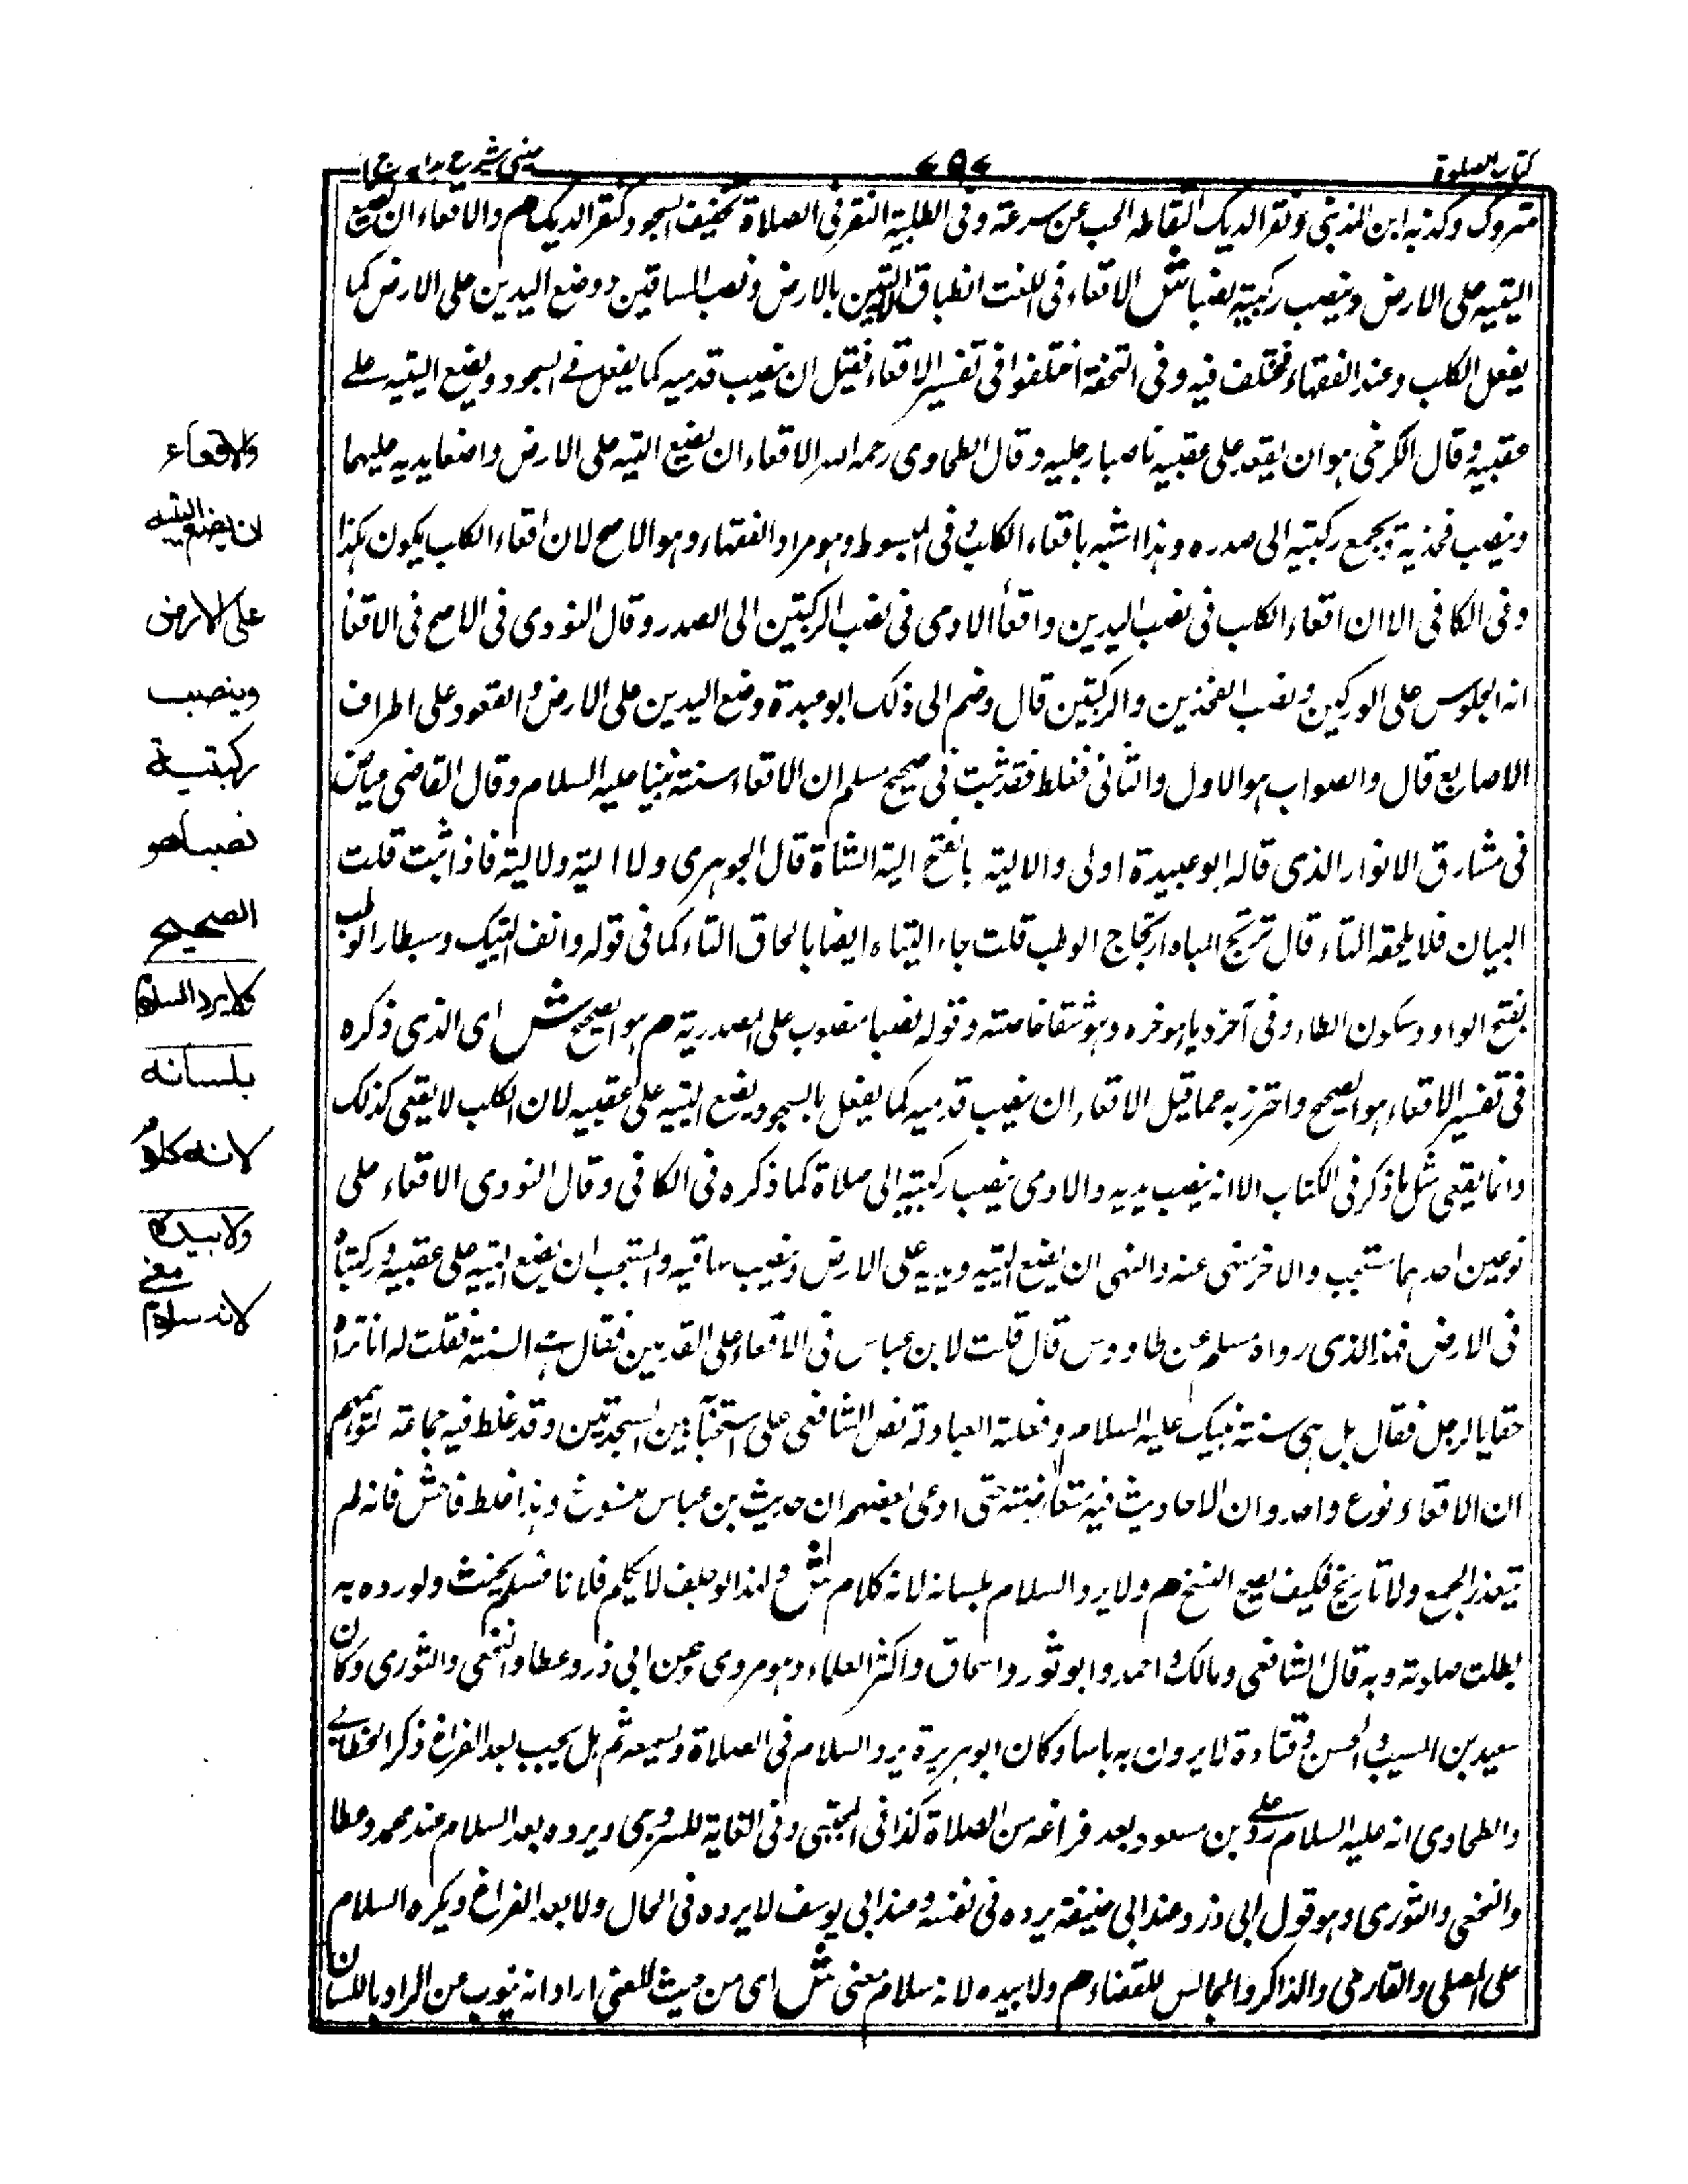 كتاب الصلوة
٧٥٧
عينى شرح هدايه ج ١
متروك وكذبه ابن المدينى ونقر الديك التقاطه الحب عن سرعة وفى الطلبة النقر فى الصلاة تخفيف السجود كنقر الديك م والاقعاء ان يضع
اليتيه على الارض وينصب ركبتيه نصبا ش الاقعاء فى اللغت انطباق الاليتين بالارض ونصب الساقين ووضع اليدين على الارض كما
يفعل الكلب وعند الفقهاء مختلف فيه وفى التحفة اختلفوا فى تفسير الاقعاء فقيل ان ينصب قدميه كما يفعل فى السجود ويضع اليتيه على
عقبيه وقال الكرخى هو ان يقعد على عقبيه ناصبا رجليه وقال الطحاوى رحمه الله الاقعاء ان يضع اليتيه على الارض واضعا يديه عليهما
وينصب فخذيه ويجمع ركبتيه الى صدره وهذا اشبه باقعاء الكلب وفى المبسوط وهو مراد الفقهاء وهو الاصح لان اقعاء الكلب يكون هكذا
وفى الكافى الا ان اقعاء الكلب فى نصب اليدين واقعأ الادمى فى نصب الركبتين الى الصدر وقال النووى فى الاصح فى الاقعأ
انه الجلوس على الوركين ونصب الفخذين والركبتين قال وضم الى ذلك ابو عبيدة وضع اليدين على الارض والقعود على اطراف
الاصابع قال والصواب هو الاول والثانى فغلط فقد ثبت فى صحيح مسلم ان الاقعاء سنة نبينا عليه السلام وقال القاضى عياض
فى مشارق الانوار الذى قاله ابو عبيدة اولى والالية بالفتح الية الشاة قال الجوهرى ولا الية ولا لية فاذا ثنيت قلت
اليان فلا يلحقه التاء قال ترتج الياه ارتجاج الوطب قلت جاء اليتاء ايضا بالحاق التاء كما فى قوله وانف اليتيك وسبطار الوطب
بفتح الواو وسكون الطاء وفى آخره باء موخره وهو سقاء خاصة وقوله نصبا منصوب على المصدرية م هو الصحيح ش اى الذى ذكره
فى تفسير الاقعاء هو الصحيح واحترز به عما قيل الاقعاء ان ينصب قدميه كما يفعل بالسجود ويضع اليتيه على عقبيه لان الكلب لا يقعى كذلك
وانما يقعى مثل ما ذكر فى الكتاب الا انه ينصب يديه والادمى ينصب ركبتيه الى صلاة كما ذكره فى الكافى وقال النووى الاقعاء على
نوعين احدهما مستحب والاخر منهى عنه والنهى ان يضع اليتيه ويديه على الارض وينصب ساقيه والمستحب ان يضع اليتيه على عقبيه وركبتاه
فى الارض فهذا الذى رواه مسلم عن طاووس قال قلت لابن عباس فى الاقعاء على القدمين فقال هى السنة فقلت له انا نراه
جفا بالرجل فقال بل هى سنة نبيك عليه السلام وفعلته العبادلة نص الشافعى على استحبابه بين السجدتين وقد غلط فيه جماعة لتوهمهم
ان الاقعاء نوع واحد وان الاحاديث فيه متعارضة حتى ادعى بعضهم ان حديث بن عباس منسوخ وهذا غلط فاحش فانه لم
يتعذر الجمع ولا تاريخ فكيف يصح النسخ م ولا يرد السلام بلسانه لانه كلام ش ولهذا لو حلف لا يكلم فلانا فسلم يحنث ولو رده به
بطلت صلوته وبه قال الشافعى ومالك واحمد وابو ثور واسحاق واكثر العلماء وهو مروى عن ابى ذر وعطا والنخعى والثورى وكان
سعيد بن المسيب والحسن وقتادة لا يرون به باسا وكان ابو هريرة يرد السلام فى الصلاة ويسمعه ثم هل يجيب بعد الفراغ ذكر الخطابى
والطحاوى انه عليه السلام رد على بن مسعود بعد فراغه من الصلاة كذا فى المجتبى وفى الغاية للسروجى ويرده بعد السلام عند محمد وعطا
والنخعى والثورى وهو قول ابى ذر وعند ابى حنيفة يرده فى نفسه وعند ابى يوسف لا يرده فى الحال ولا بعد الفراغ ويكره السلام
على المصلى والقارئ والذاكر والجالس للقضاء م ولا بيده لانه سلام معنى ش اى من حيث المعنى اراد انه ينوب عن الراد باللسان
والاقعاء
ان يضع اليتيه
على الارض
وينصب
ركبتيه
نصبا هو
الصحيح
ولا يرد السلام
بلسانه
لانه كلام
ولا بيده
لانه سلام معنى